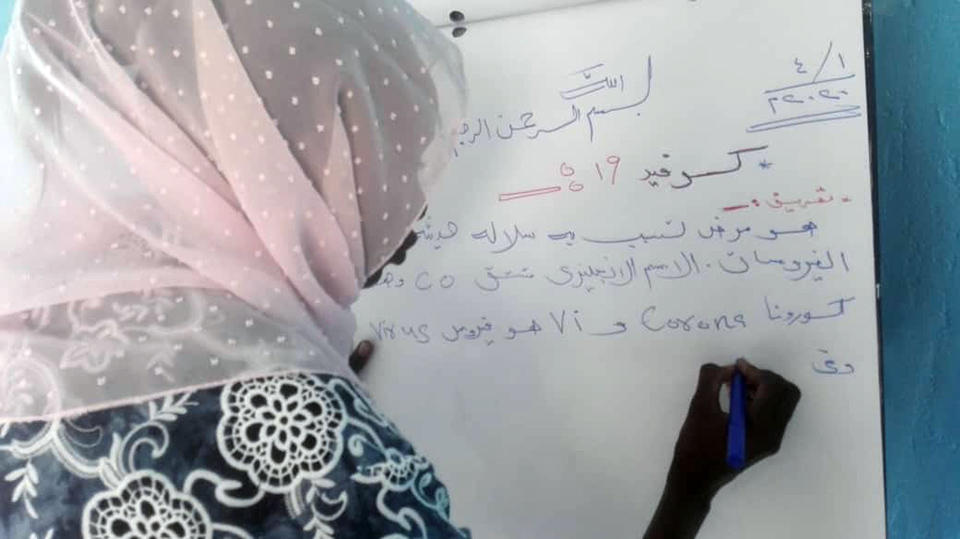 ١/٤
٢٠٢٠م
بسم الله الرحمن الرحيم
* كوفيد ١٩ %
* تعريف :ـ
هو مرض تسبب به سلاله
الفيروسات . الاسم الانجليزي مشتق CO وهـ
كورونا Corona و Vi هو فيروس Virus